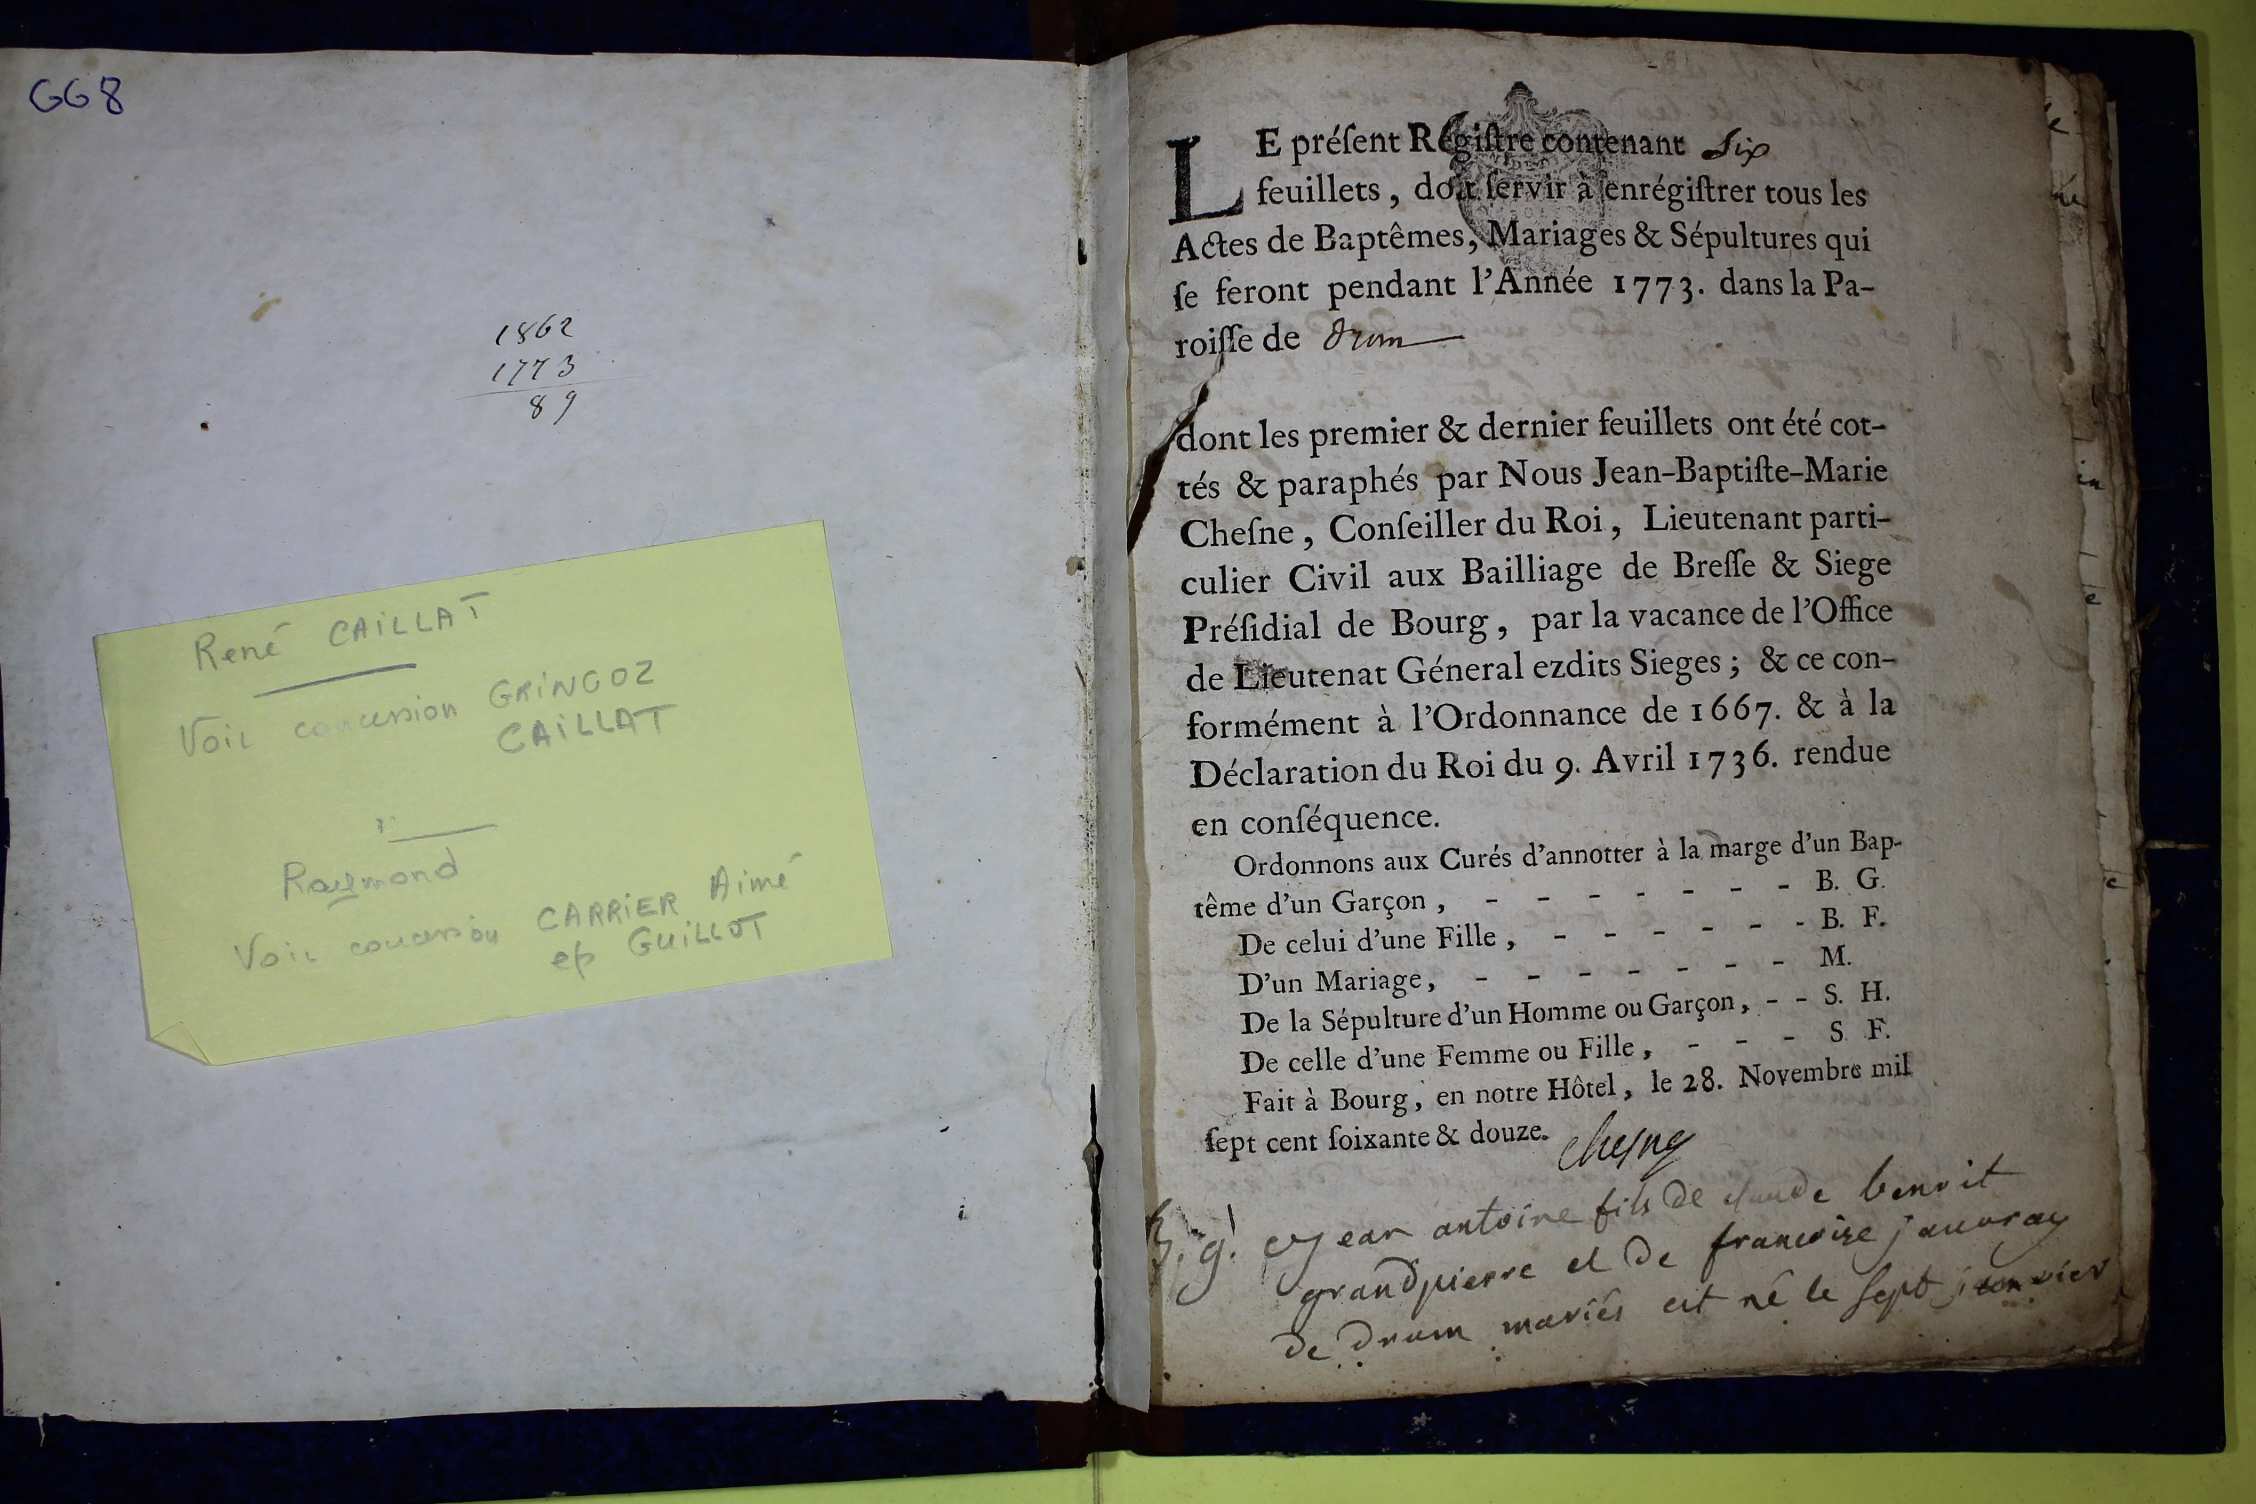 GG8
1862
1773
89
René CAILLAT
Voir concession GRINGOZ
CAILLAT
Raymond
Voir concession CARRIER Aimé
ep GUILLOT
LE préſent Régiſtre contenant Six
feuillets, doit ſervir à enrégiſtrer tous les
Actes de Baptêmes, Mariages & Sépultures qui
ſe feront pendant l'Année 1773. dans la Pa-
roiſſe de drom
dont les premier & dernier feuillets ont été cot-
tés & paraphés par Nous Jean-Baptiſte-Marie
Cheſne, Conſeiller du Roi, Lieutenant parti-
culier Civil aux Bailliage de Breſſe & Siege
Préſidial de Bourg, par la vacance de l'Office
de Lieutenat Géneral ezdits Sieges; & ce con-
formément à l'Ordonnance de 1667. & à la
Déclaration du Roi du 9. Avril 1736. rendue
en conſéquence.
Ordonnons aux Curés d'annotter à la marge d'un Bap-
tême d'un Garçon, - - - - - - - B. G.
De celui d'une Fille, - - - - - - B. F.
D'un Mariage, - - - - - - - M.
De la Sépulture d'un Homme ou Garçon, - - S. H.
De celle d'une Femme ou Fille, - - - S F.
Fait à Bourg, en notre Hôtel, le 28. Novembre mil
ſept cent ſoixante & douze.
chesne
B. g. Jean antoine fils de claude benoit
grandpierre et de francoise jauvray
de drom mariés est né le sept janvier